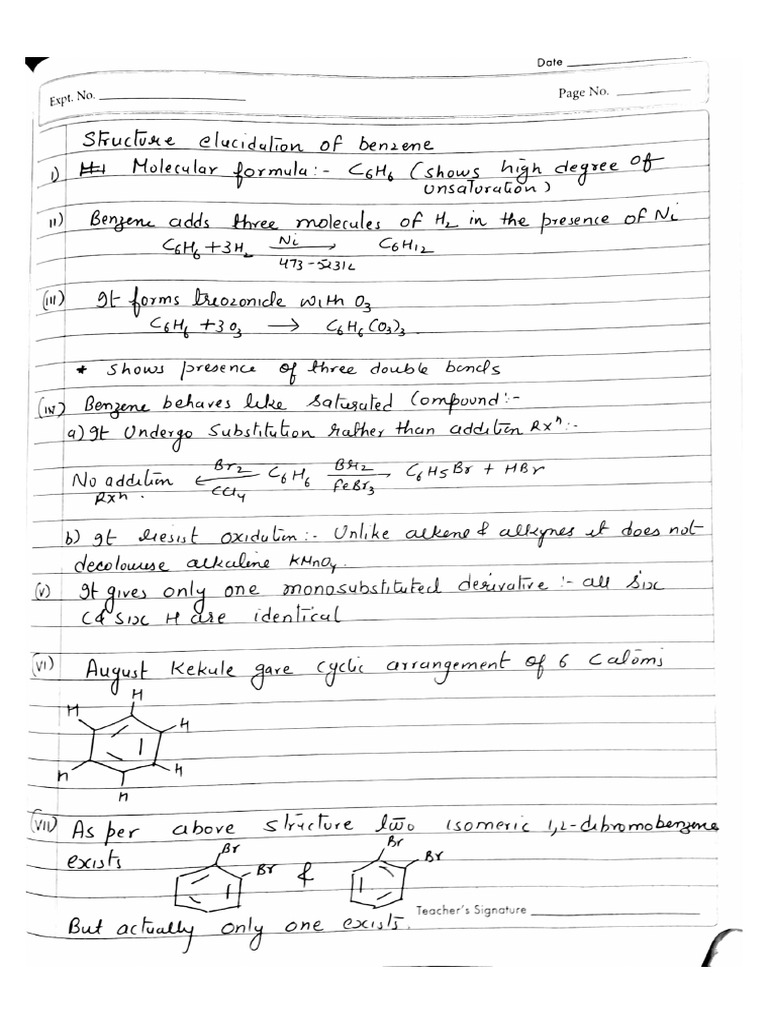 Date
Expt. No.
Page No.
Structure elucidation of benzene
i) Molecular formula:- C6H6 (shows high degree of
unsaturation)
ii) Benzene adds three molecules of H2 in the presence of Ni
C6H6 + 3H2 Ni → C6H12
473-523K
(iii) It forms triozonide with O3
C6H6 + 3O3 → C6H6(O3)3
* shows presence of three double bonds
(iv) Benzene behaves like saturated compound:-
a) It Undergo Substitution rather than addition Rxn:-
No addition ← Br2 C6H6 Br2 → C6H5Br + HBr
Rxn. CCl4 FeBr3
b) It resist oxidation:- Unlike alkene & alkynes it does not
decolourise alkaline KMnO4.
(v) It gives only one monosubstituted derivative:- all six
C & six H are identical
(vi) August Kekule gave cyclic arrangement of 6 C atoms
H
H
H
H
H
H
(vii) As per above structure two isomeric 1,2-dibromobenzene
exists Br Br & Br Br
Teacher's Signature
But actually only one exists.